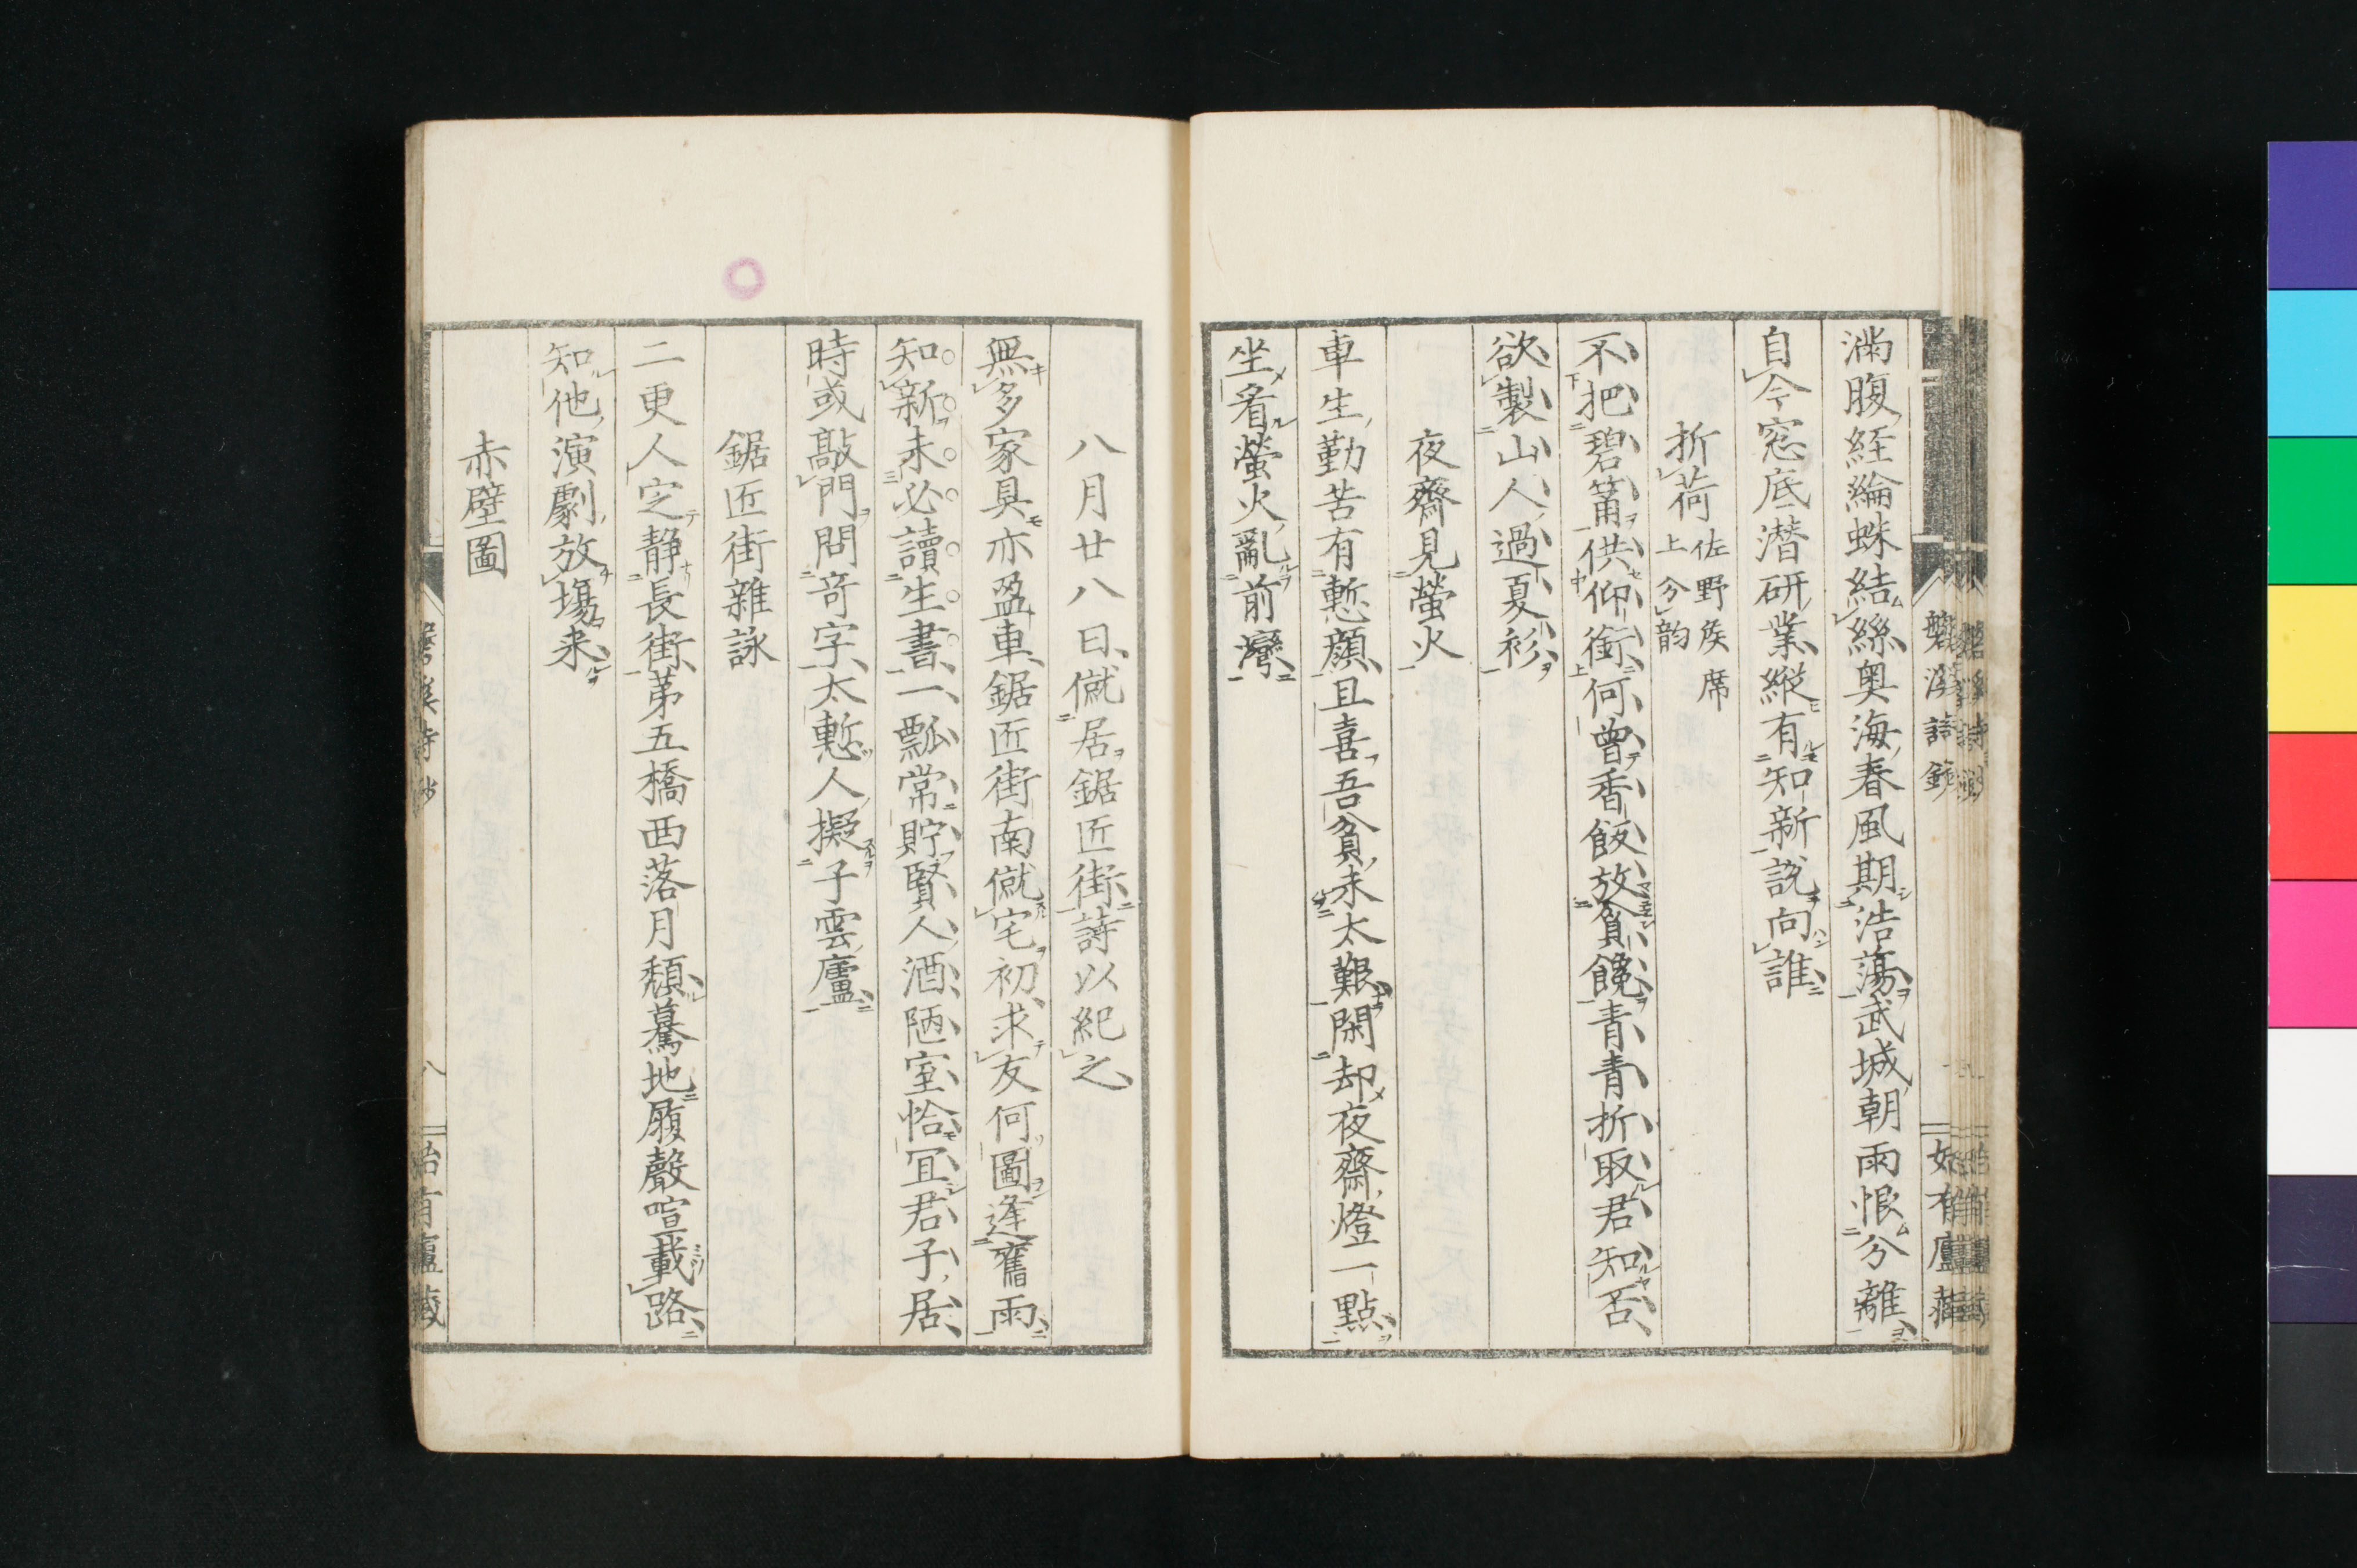 滿腹経綸蛛結絲奥海春風期浩蕩武城朝雨恨分離
自今窓底潜研業縱有知新說向誰
折荷 佐野矦席上分韵
不把碧筩供仰銜何曽香飯放貪饞青青折取君知否
欲製山人過夏衫
夜齋見螢火
車生勤苦有慙顔且喜吾貧未太艱閑却夜齋燈一點
坐看螢火亂前灣
八月廿八日僦居鋸匠街詩以紀之
無多家具亦盈車鋸匠街南僦宅初求友何圖逢舊雨
知新未必讀生書一瓢常貯賢人酒陋室恰冝君子居
時或敲門問竒字太慙人擬子雲廬
鋸匠街雜詠
二更人定静長街第五橋西落月頽驀地屐聲喧載路
知他演劇放場来
赤壁圖
八